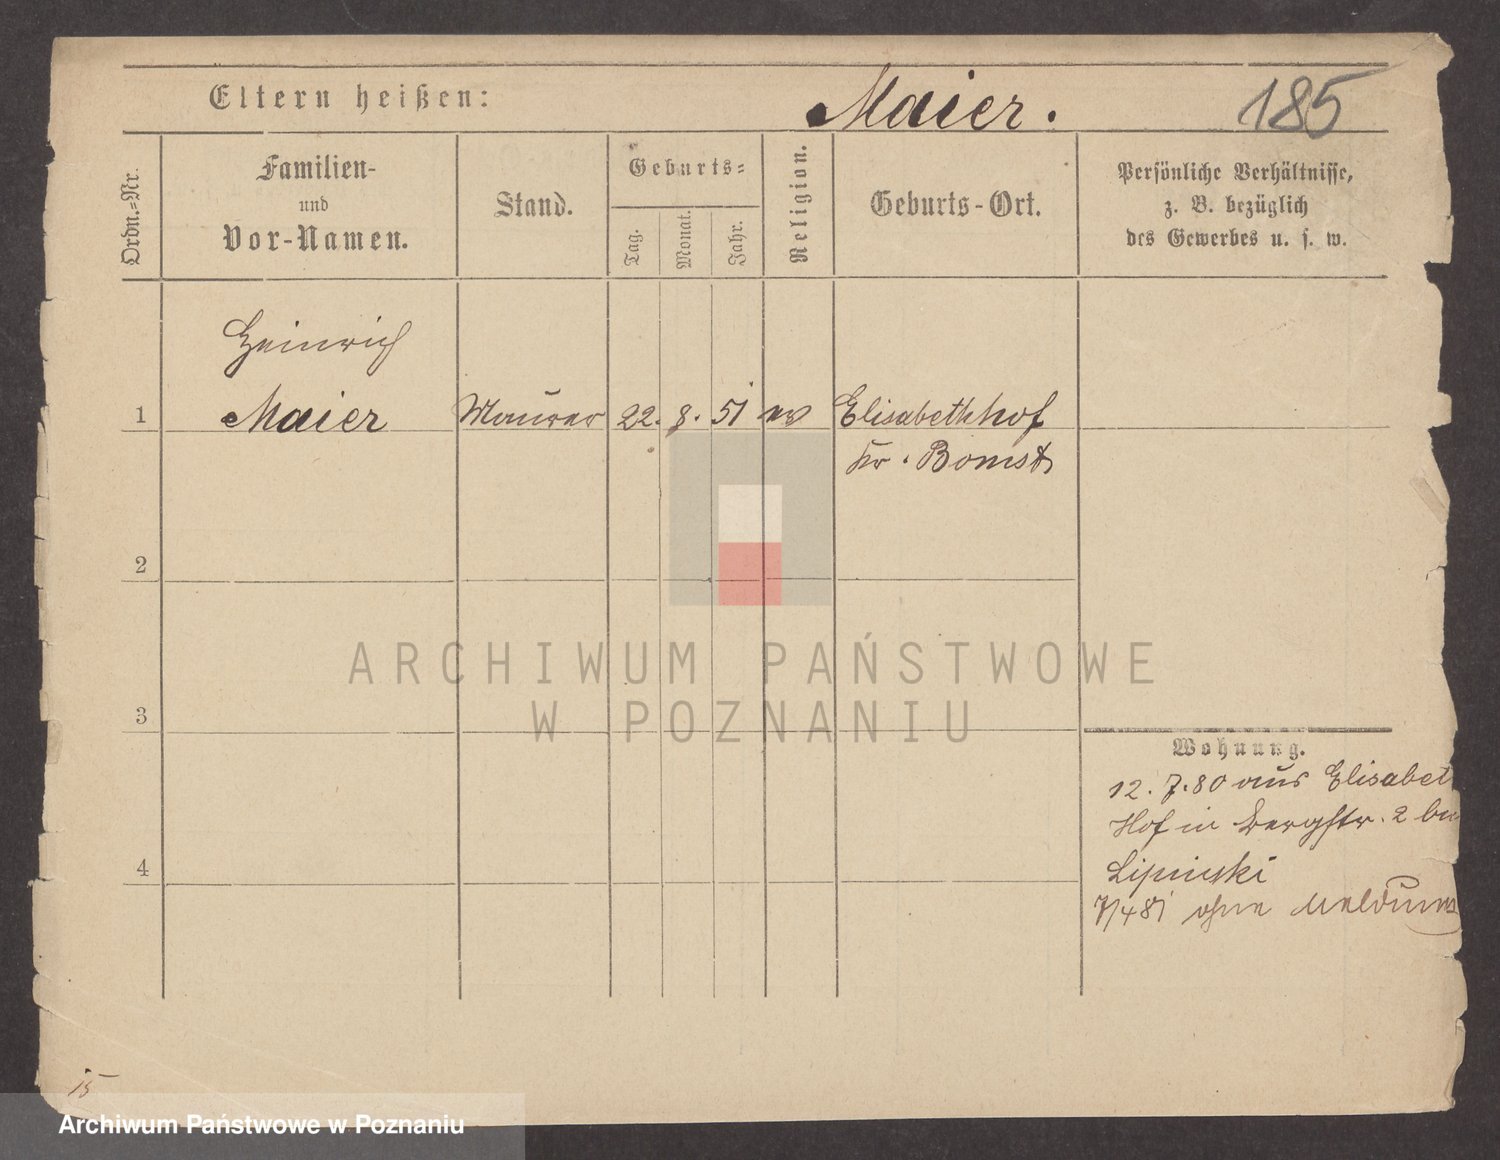 Eltern heißen:
Maier.
185
Ordn.-Nr.
Familien-
und
Vor-Namen.
Stand.
Geburts-
Tag.
Monat.
Jahr.
Religion.
Geburts-Ort.
Persönliche Verhältnisse,
z. B. bezüglich
des Gewerbes u. s. w.
Heinrich
1 Maier Maurer 22. 8. 51 ev Elisabethhof
Kr. Bomst
2
3
4
Wohnung.
12. 7. 80 aus Elisabet
Hof in Bergstr. 2 bei
Lipinski
7/4 81 ohne Meldung
15
ARCHIWUM PAŃSTWOWE
W POZNANIU
Archiwum Państwowe w Poznaniu